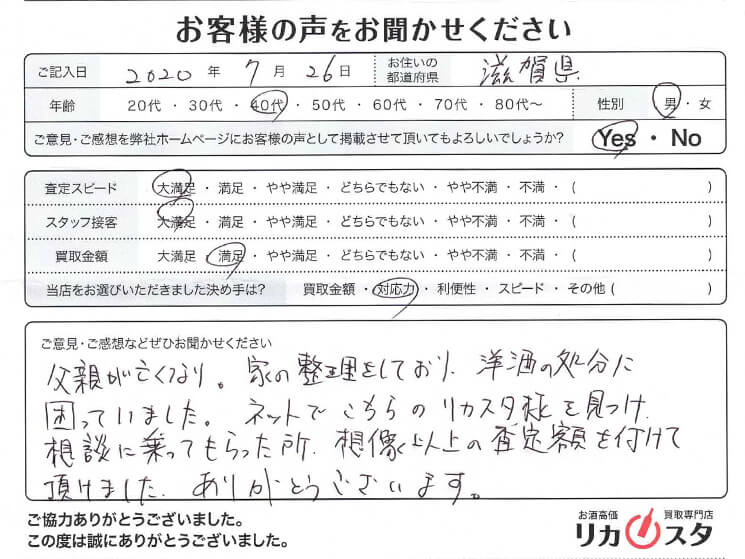 お客様の声をお聞かせください
ご記入日 2020 年 7 月 26 日 お住いの都道府県 滋賀県
年齢 20代 ・ 30代 ・ 40代 ・ 50代 ・ 60代 ・ 70代 ・ 80代〜 性別 男 ・ 女
ご意見・ご感想を弊社ホームページにお客様の声として掲載させて頂いてもよろしいでしょうか? Yes ・ No
査定スピード 大満足 ・ 満足 ・ やや満足 ・ どちらでもない ・ やや不満 ・ 不満 ・ ( )
スタッフ接客 大満足 ・ 満足 ・ やや満足 ・ どちらでもない ・ やや不満 ・ 不満 ・ ( )
買取金額 大満足 ・ 満足 ・ やや満足 ・ どちらでもない ・ やや不満 ・ 不満 ・ ( )
当店をお選びいただきました決め手は? 買取金額 ・ 対応力 ・ 利便性 ・ スピード ・ その他 ( )
ご意見・ご感想などぜひお聞かせください
父親が亡くなり。家の整理をしており、洋酒の処分に
困っていました。ネットでこちらのリカスタ様を見つけ、
相談に乗ってもらった所、想像以上の査定額を付けて
頂けました。ありがとうございます。
ご協力ありがとうございました。
この度は誠にありがとうございました。
お酒高価 買取専門店
リカスタ